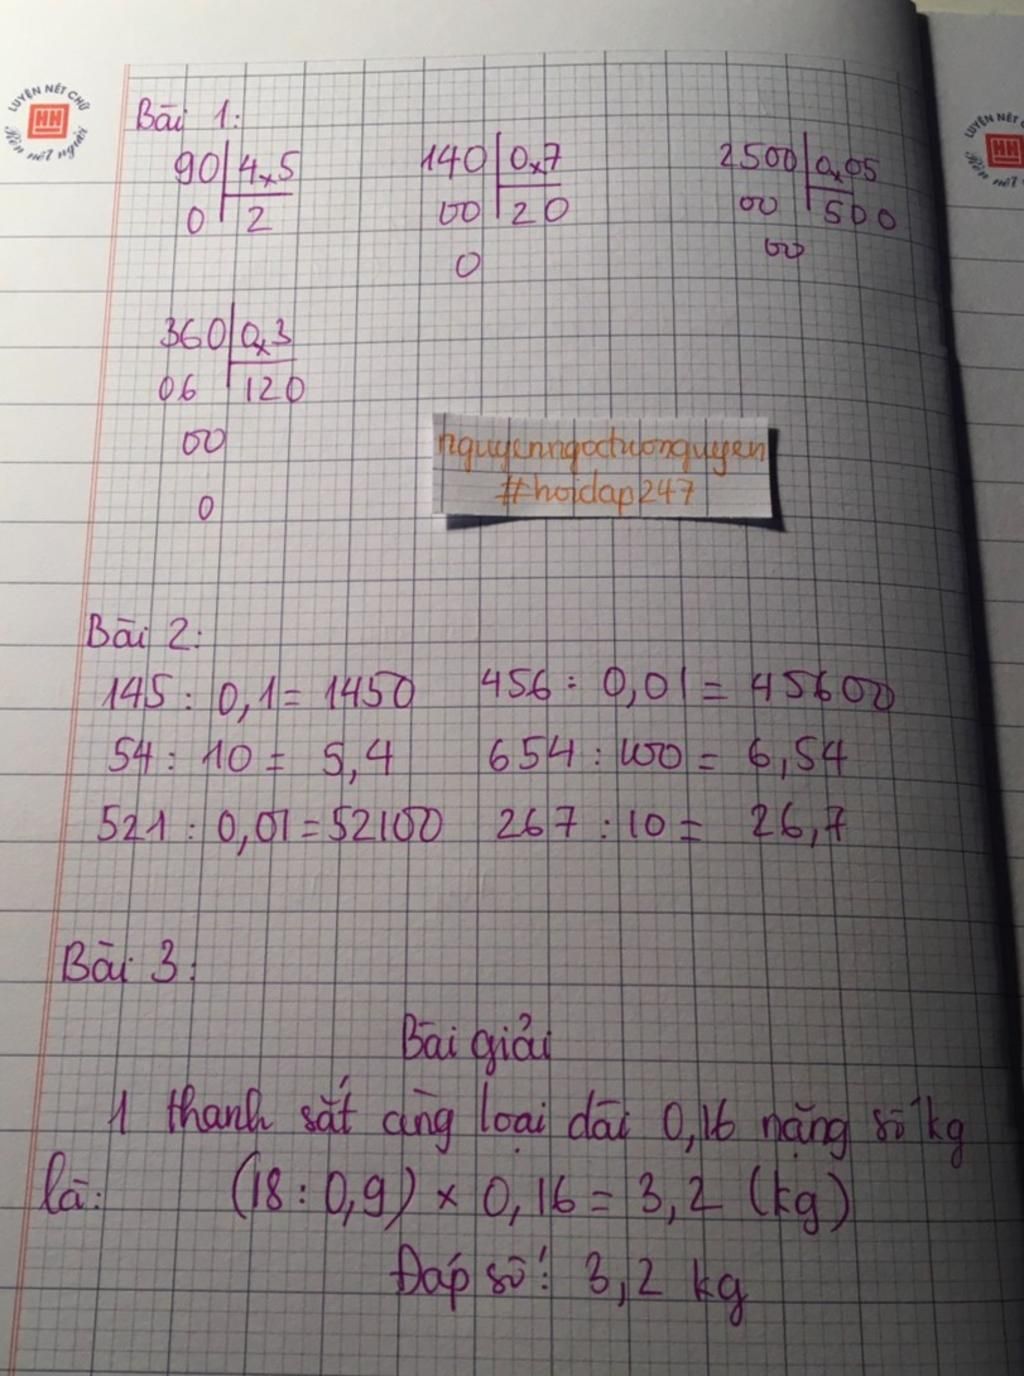 LUYỆN NÉT CHỮ
HH
Rèn nết người
LUYỆN NÉT
HH
Rèn nết
Bài 1:
90 4,5 140 0,7 2500 0,05
0 2 00 20 00 500
0 00
360 0,3
06 120
00
0
nguyenngoctuonguyen
#hoidap247
Bài 2:
145 : 0,1 = 1450 456 : 0,01 = 45600
54 : 10 = 5,4 654 : 100 = 6,54
521 : 0,01 = 52100 267 : 10 = 26,7
Bài 3:
Bài giải
1 thanh sắt cùng loại dài 0,16 nặng số kg
là: (18 : 0,9) × 0,16 = 3,2 (kg)
Đáp số: 3,2 kg